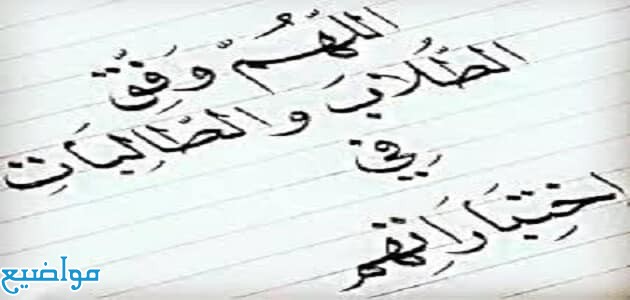 اللّهُمّ وَفِّق
الطُّلابَ والطّالِبَاتِ
في
اختِبَارَاتهم
مواضيع